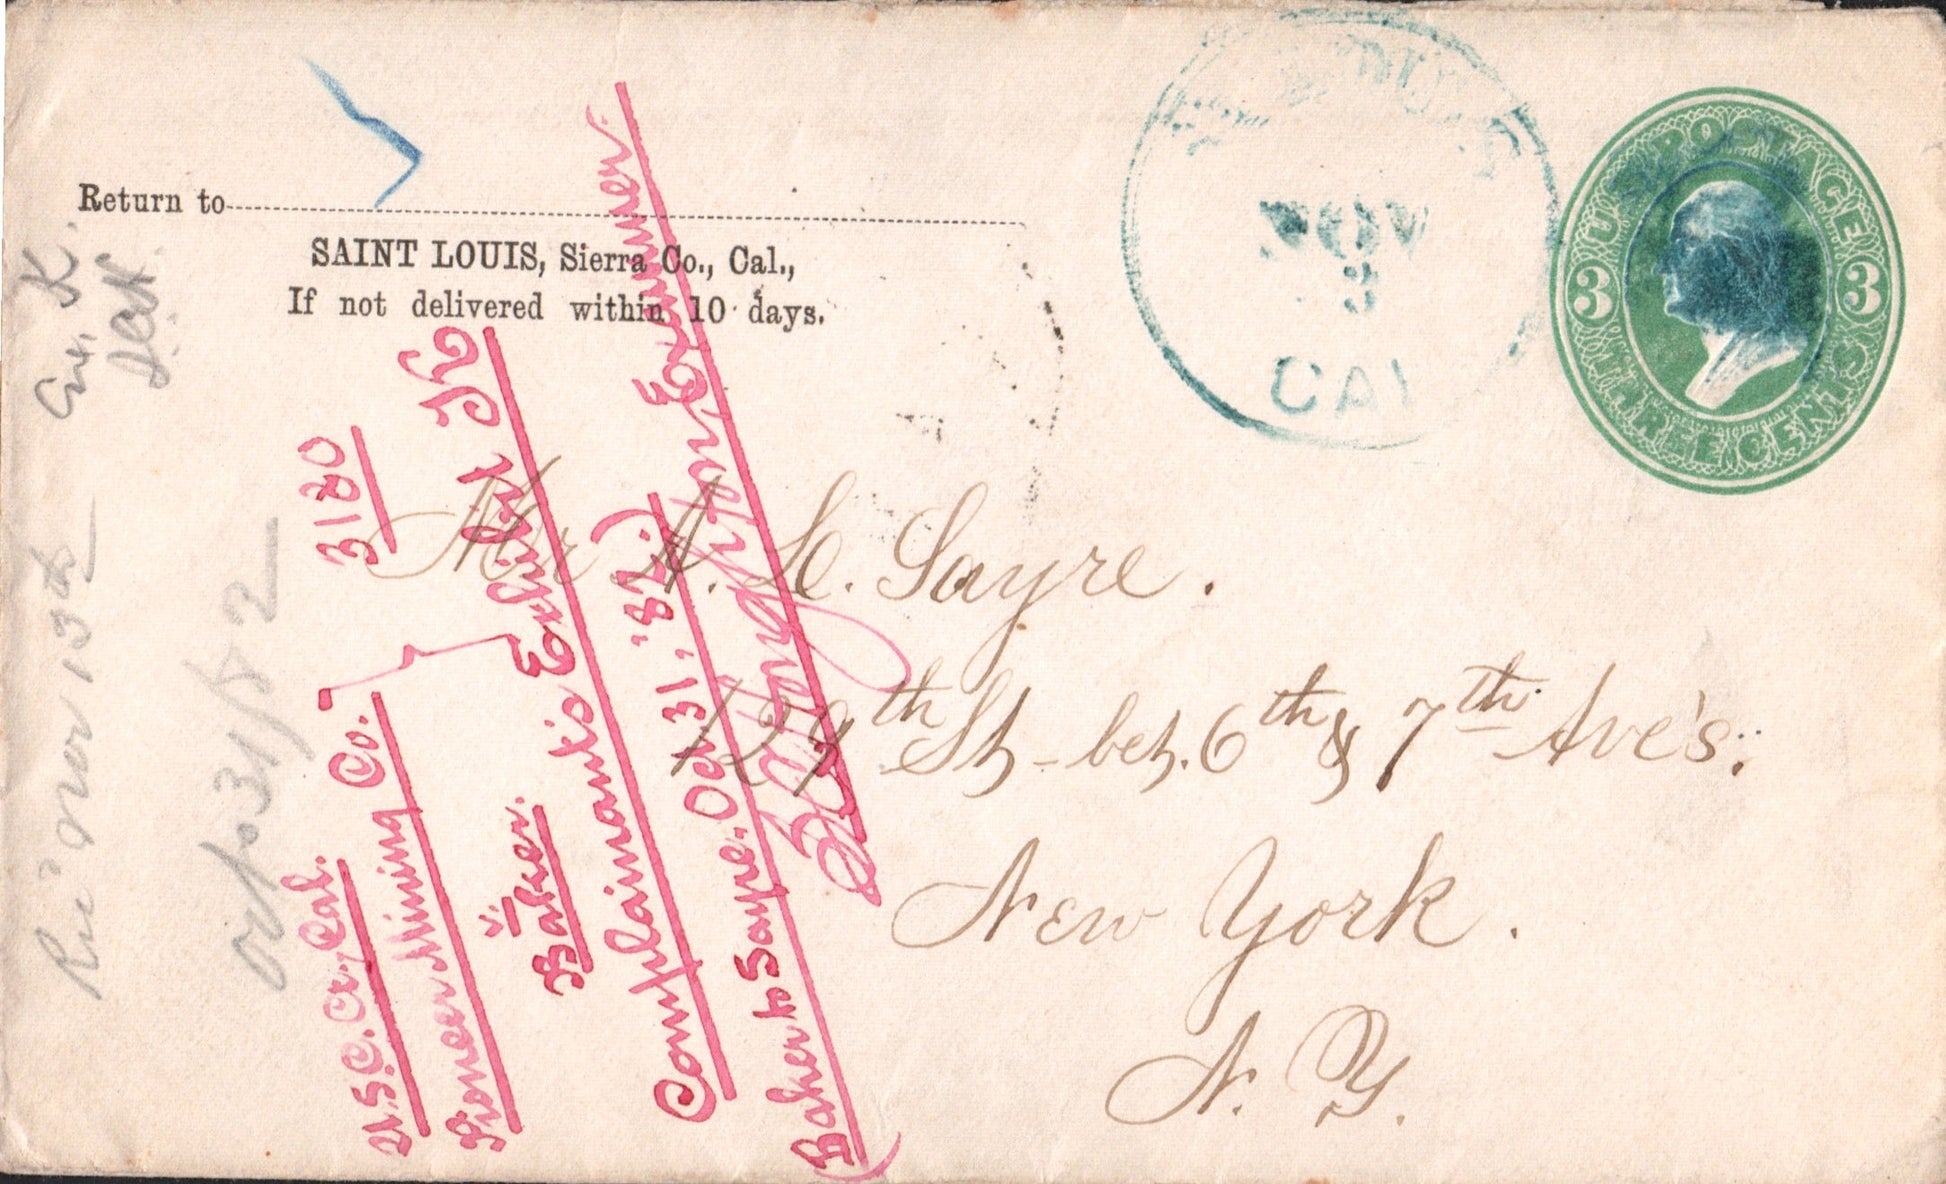 Return to
SAINT LOUIS, Sierra Co., Cal.,
If not delivered within 10 days.
NOV
3
CAL
U.S. POSTAGE
3 3
THREE CENTS
Mr A. L. Sayre.
129th St - bet. 6th & 7th Ave's.
New York.
N. Y.
Rec'd Nov 13th
Ex. K.
Oct. 31/82
3120
U.S.C. Ct., Cal.
Pioneer Mining Co.
v.
Baker.
Complainant's Exhibit K
(Baker to Sayre, Oct 31, '82.)
Examiner.